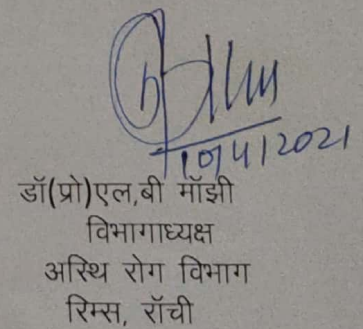 10/4/2021
डॉ(प्रो)एल,बी मॉझी
विभागाध्यक्ष
अस्थि रोग विभाग
रिम्स, रॉची